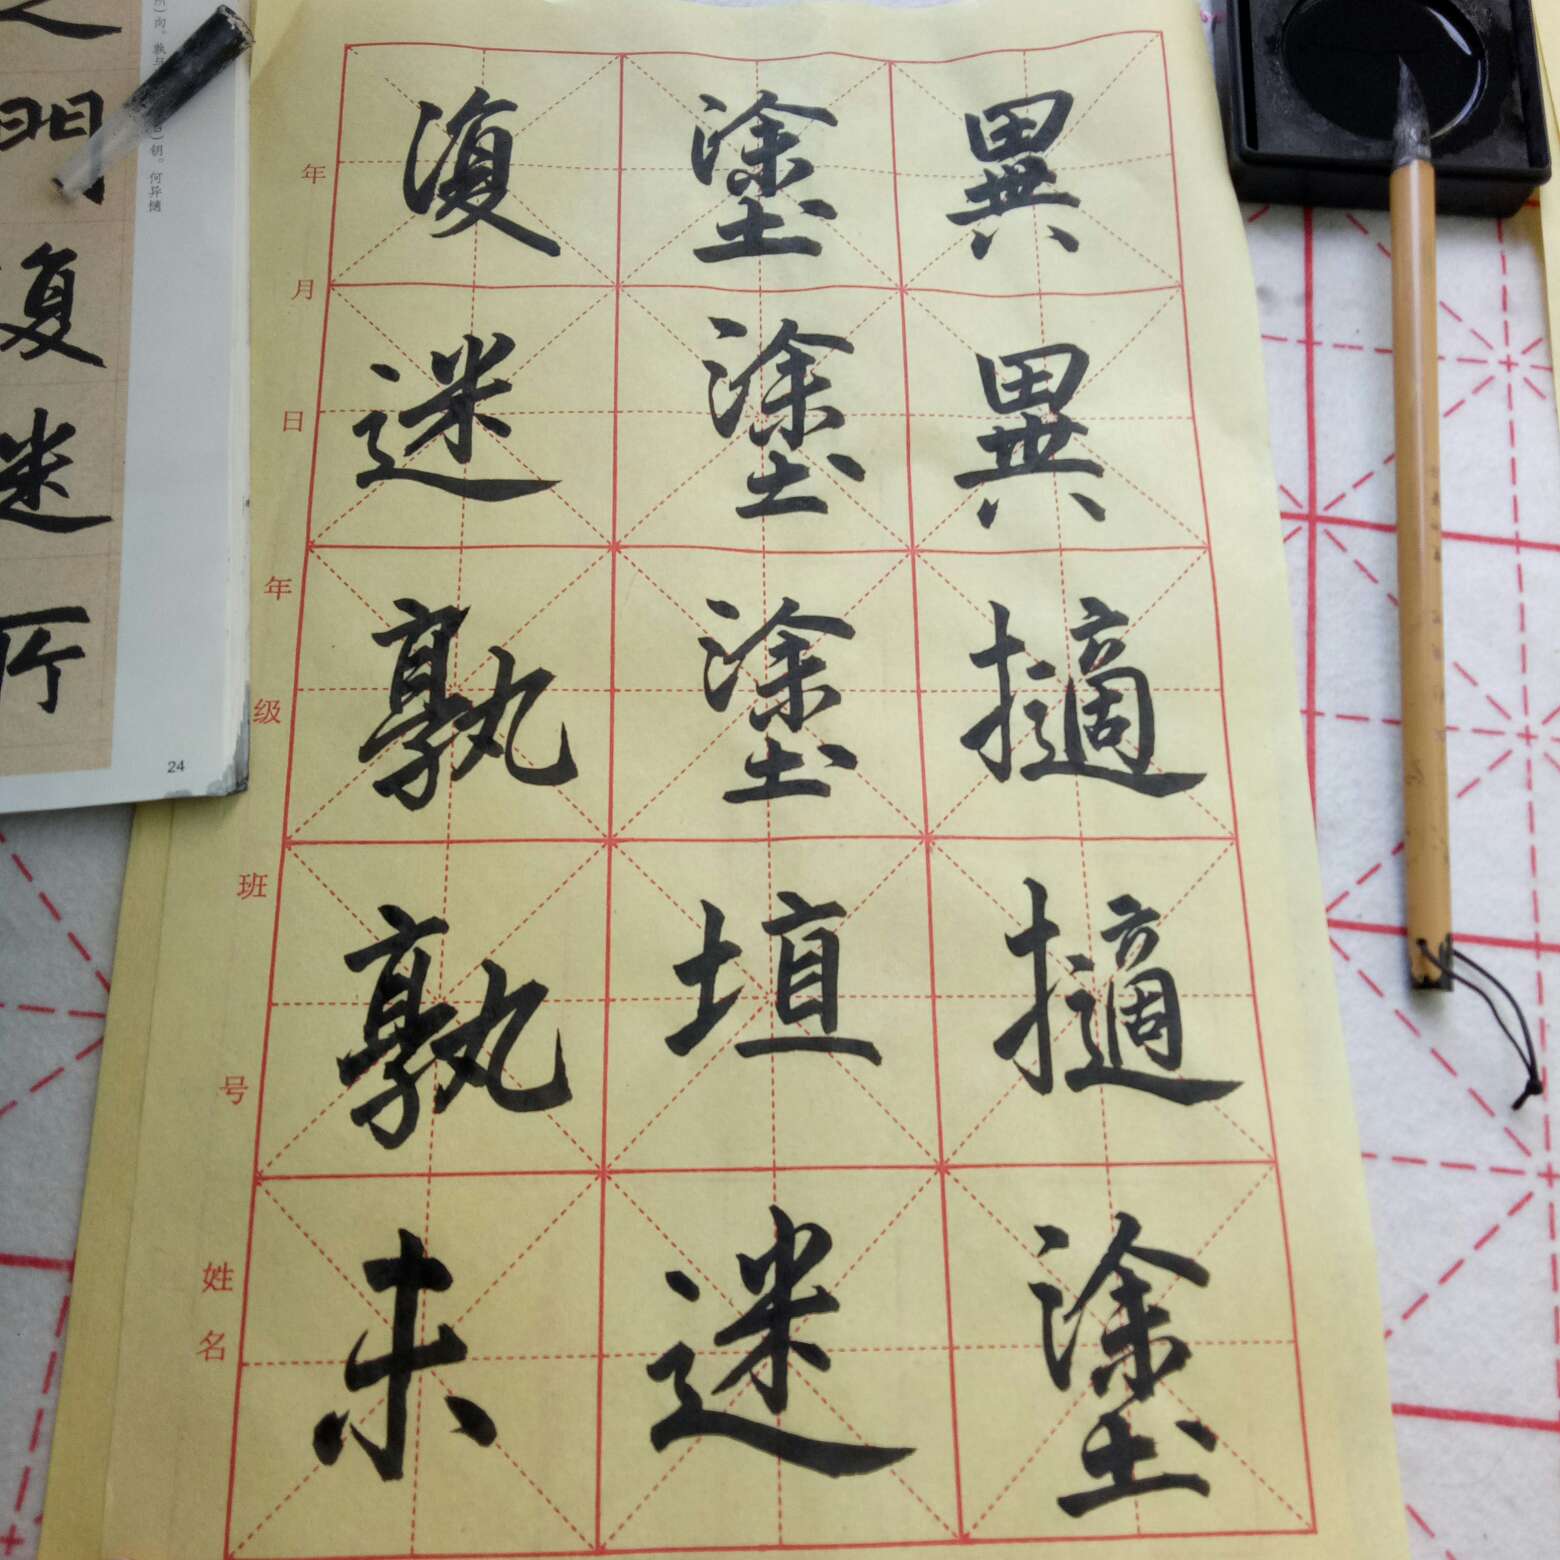 異異擿擿塗
塗塗塗埴迷
復迷孰孰未
年月日
年级
班
号
姓名
）向。孰与
）钥。何异擿
門復迷所
24